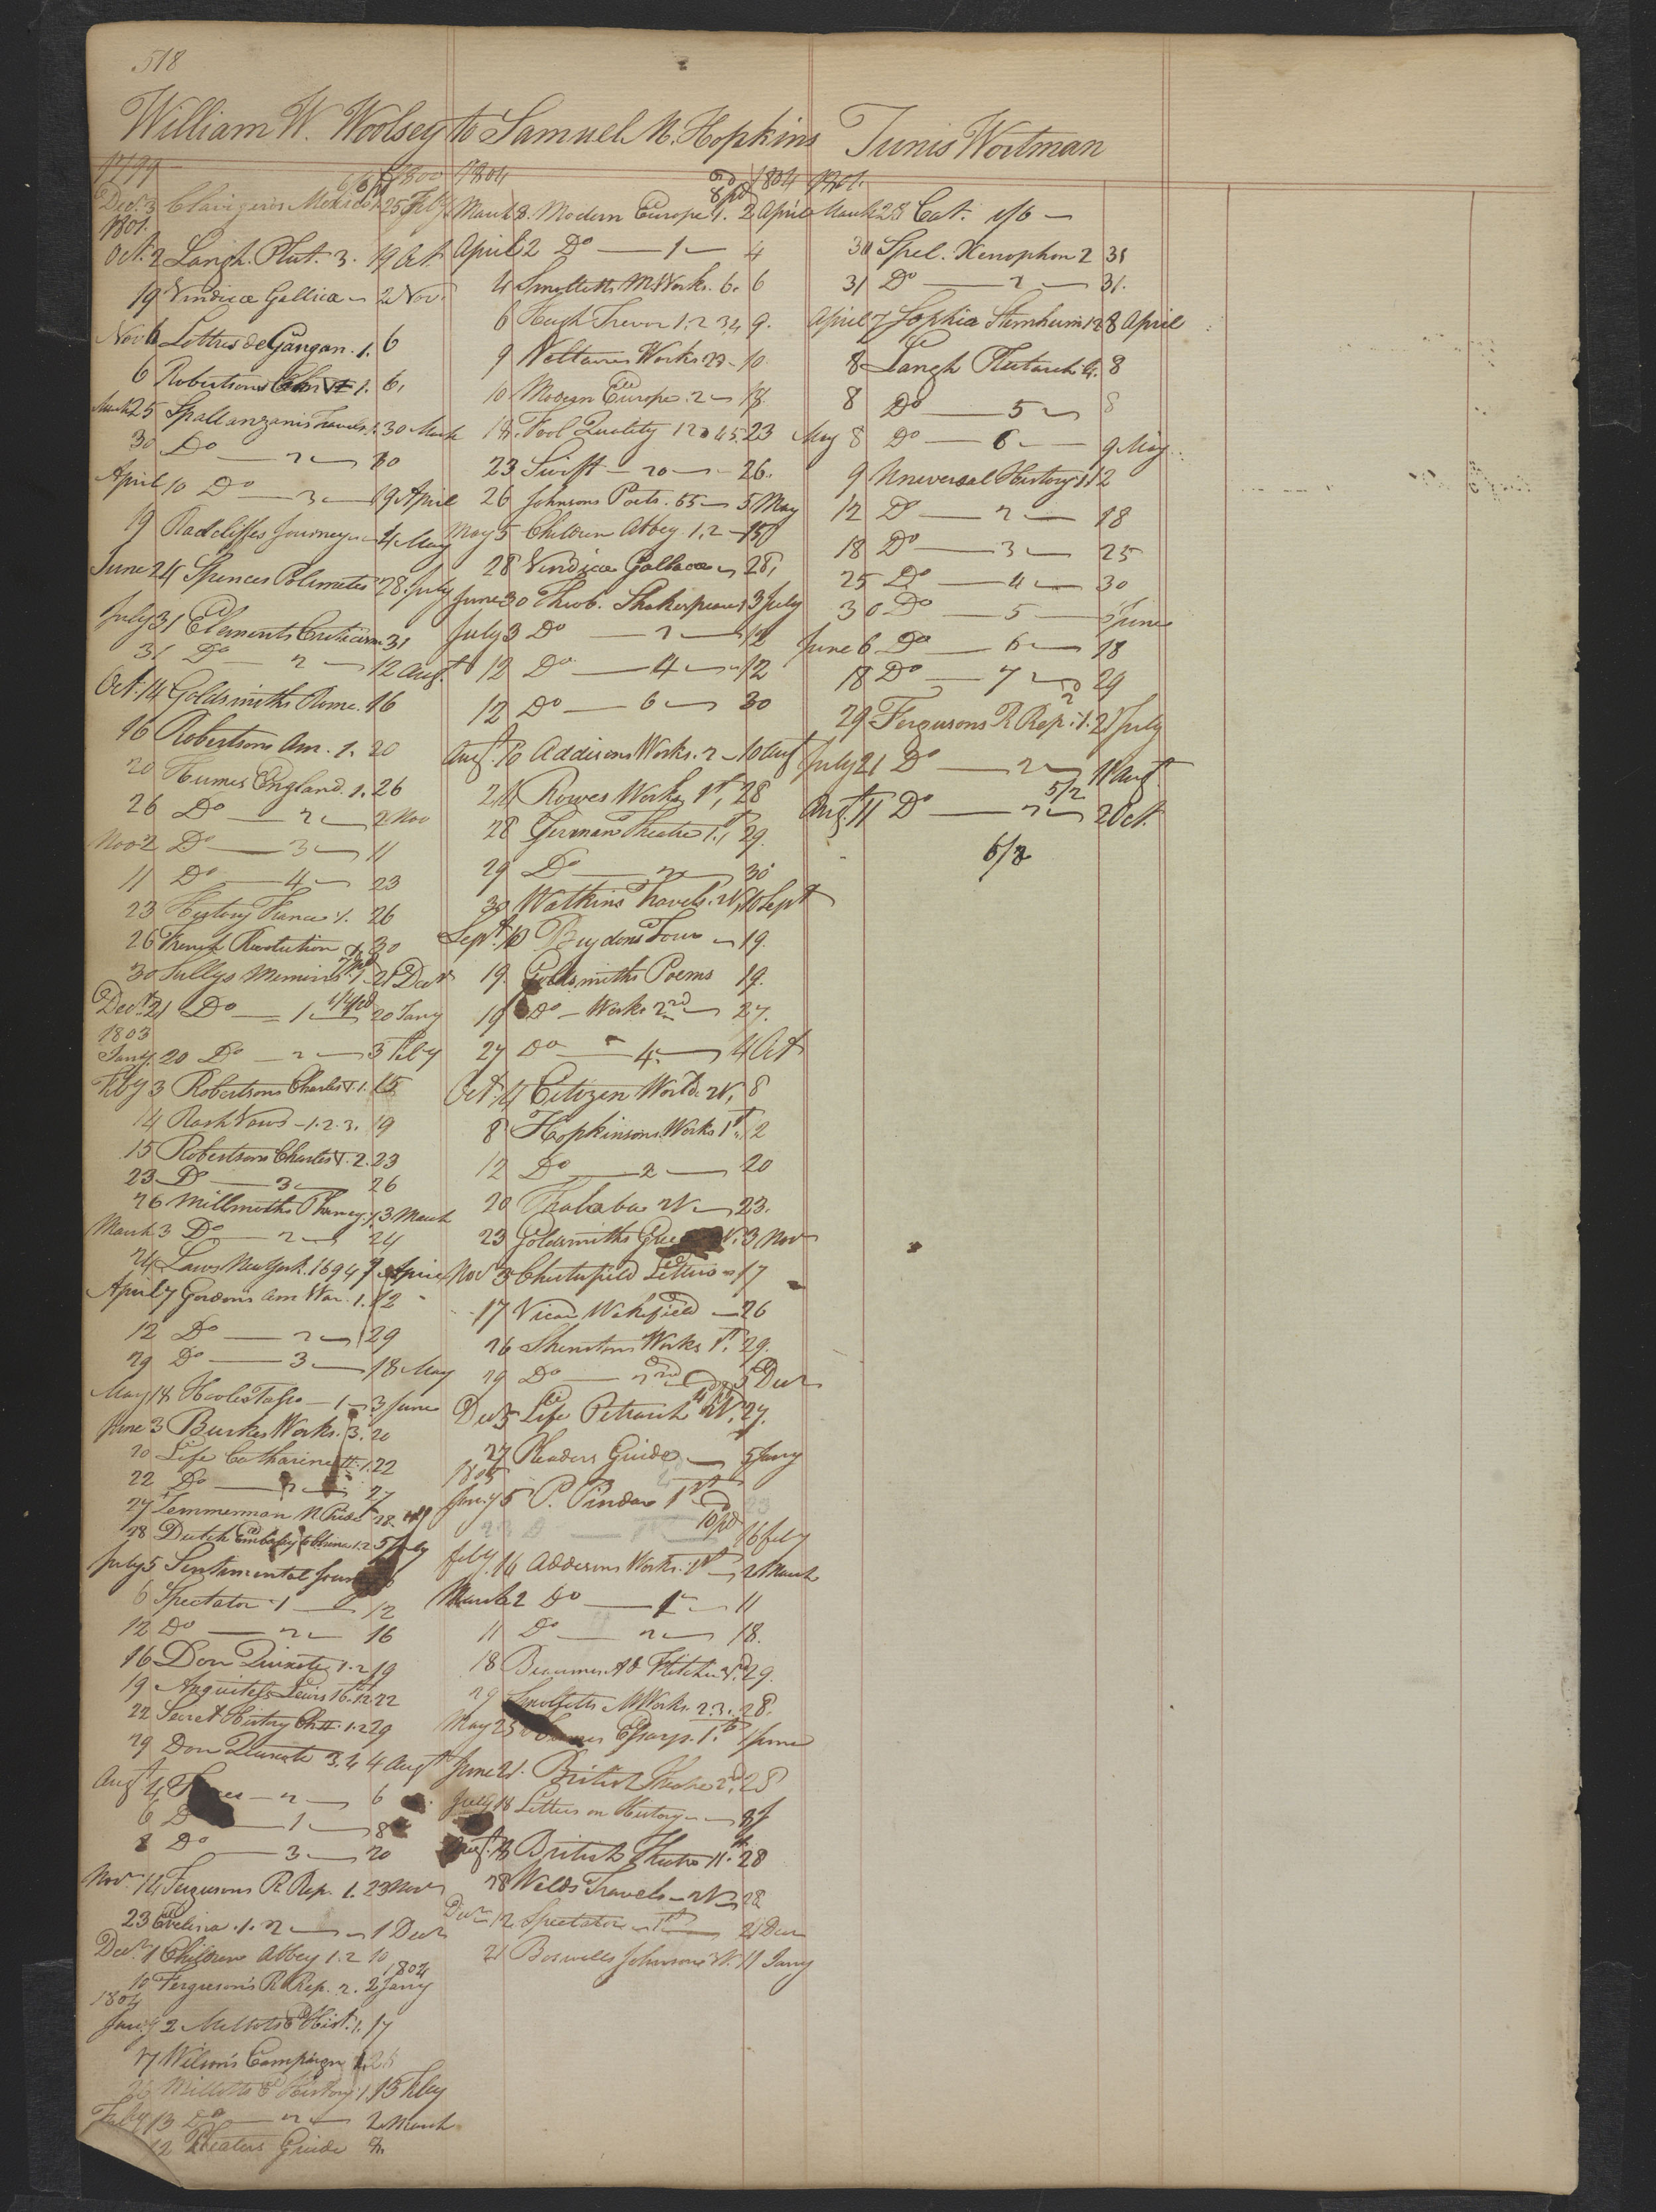 518
William W. Woolsey to Samuel M. Hopkins
1799 1800
Dec. 3 Clavigeros Mexico 25 Feby
1801.
Oct. 2 Langh. Plut. 3. 19 Oct
19 Vindicæ Gallica 2 Nov.
Nov 6 Lettres de Gangan. 1. 6
6 Robertsons Chs V 1. 6.
March 25 Spallanzanis Travels. 1. 30 March
30 Do 2 30
April 10 Do 3 19 April
19 Radcliffes Journey 4 May
June 24 Spences Polimetis 28 July
July 31 Elements Criticism 31
31 Do 2 12 Augt
Oct. 14 Goldsmiths Rome. 16
16 Robertsons Am. 1. 20
20 Humes England. 1. 26
26 Do 2 2 Nov
Nov 2 Do 3 11
11 Do 4 23
23 History France 1. 26
26 French Revolution 30
30 Sullys Memoirs 1 21 Decr
Decr. 21 Do 1 20 Jany
1803
Jany. 20 Do 2 3 Feby
Feby 3 Robertsons Charles V. 1. 15
14 Rash Vows 1. 2. 3. 19
15 Robertsons Charles V. 2. 23
23 Do 3 26
26 Millmoths Pliney. 1. 3 March
March 3 Do 2 24
24 Laws New York. 1694 7 April
April 7 Gordons Am War. 1. 12
12 Do 2 29
29 Do 3 18 May
May 18 Hooles Tasso 1 3 June
June 3 Burkes Works. 3. 20
20 Life Catharine II. 1. 22
22 Do 2 27
27 Zemmerman N Pride 28
28 Dutch Embassy China 1. 2 5 July
July 5 Sentimental Jour
6 Spectator 1 12
12 Do 2 16
16 Don Quixote 1. 2 19
19 Anquitels Lewis 16th. 1. 2. 22
22 Secret History Chs II. 1. 2 29
29 Don Quixote 3. 4 4 Augt
Augt 4 2 6
6 Do 1 8
8 Do 3 20
Novr 14 Fergusons R. Rep. 1. 23 Novr
23 Evelina. 1. 2 1 Decr
Decr. 1 Children Abbey 1. 2 10
1804
10 Ferguson's R. Rep. 2. 2 Jany
1804
Jany 2 Millots E Hist. 1. 17
17 Wilsons Campaign 1. 26
26 Millotts E History. 1. 13 Feby
Feby 13 Do 2 2 March
12 Pleaders Guide
1804 1804
8pd
March 8. Modern Europe 1. 2 April
April 2 Do 1 4
4 Smolletts M Works. 6. 6
6 Hugh Trevor 1. 2 3. 4 9.
9 Voltaires Works 22 10.
10 Modern Europe. 2 18.
18. Fool Quality 1 2 3 4 5. 23
23 Swift 20 26.
26 Johnsons Poets. 55 5 May
May 5 Children Abbey 1. 2 15
28 Vindicæ Gallacæ 28.
June 30 Theob. Shakespeare 1 3 July
July 3 Do 2 12
12 Do 4 12
12 Do 6 30
Augt. 10 Addisons Works. 2 10 Augt
24 Rowes Works 1st, 28
28 German Theatre 1st, 29.
29 Do 2 30
30 Watkins Travels. 2V, 10 Sept
Sept. 10 Brydons Tour 19.
19. Goldsmiths Poems 19.
19 Do Works 2nd 27.
27 Do 4 4 Oct
Oct. 4 Citizen World. 2V, 8
8 Hopkinsons Works 1st. 12
12 Do 2 20
20 Thalaba 2V 23.
23 Goldsmiths Gree V. 3 Nov
Nov 3 Chesterfield Letters 17
17 Vicar Wakefield 26
26 Shenstons Works 1st. 29.
29 Do 2nd 5 Decr
Dec 5 Life Petrarch 2V. 27.
27 Pleaders Guide 5 Jany
1805
Jany 5 P. Pindar 1st
10pd
16 feby
feby. 16 Addisons Works. 1st 2 March
March 2 Do 1 11
11 Do 2 18.
18 Beaumont & Fletcher 29.
29 Smolletts M Works. 2. 3. 28.
May 25 Essays. 1st 1 June
June 21. British Theatre 2d. 28
July 18 Letters on History 8
Augt. 18 British Theatre 11. 28
28 Welds Travels 2V 28
Decr 12 Spectator 1st 21 Decr
21 Boswells Johnsons 3V. 11 Jany
Tunis Wortman
1801.
March 28 Cat. 1/6
30 Spel. Xenophon 2 31
31 Do 2 31.
April 7 Sophia Sternheim 1 2 8 April
8 Langh Plutarch 4. 8
8 Do 5 8
May 8 Do 6 9 May
9 Universal History 1 12
12 Do 2 18
18 Do 3 25
25 Do 4 30
30 Do 5 June
June 6 Do 6 18
18 Do 7 29
29 Fergusons R Rep. 1. 21 July
July 21 Do 2 11 Augt
5/2
Augt. 11 Do 2 2 Oct.
5/2